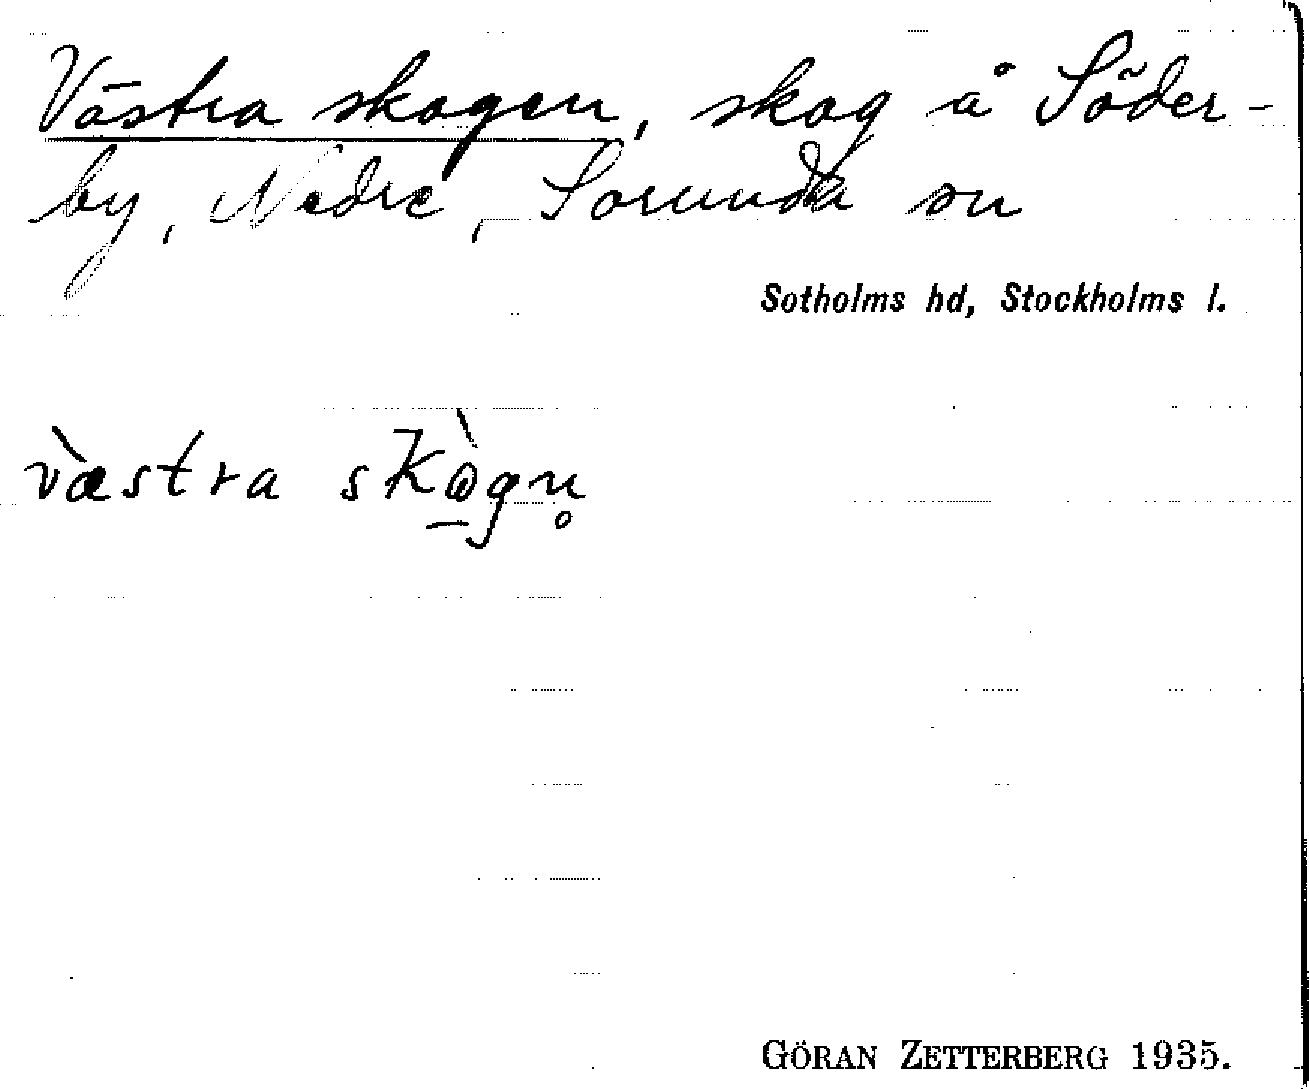 Västra skogen, skog å Söder-
by, Nedre, Sorunda sn
Sotholms hd, Stockholms l.
væ̀stra skὼ̱gn̥
GÖRAN ZETTERBERG 1935.